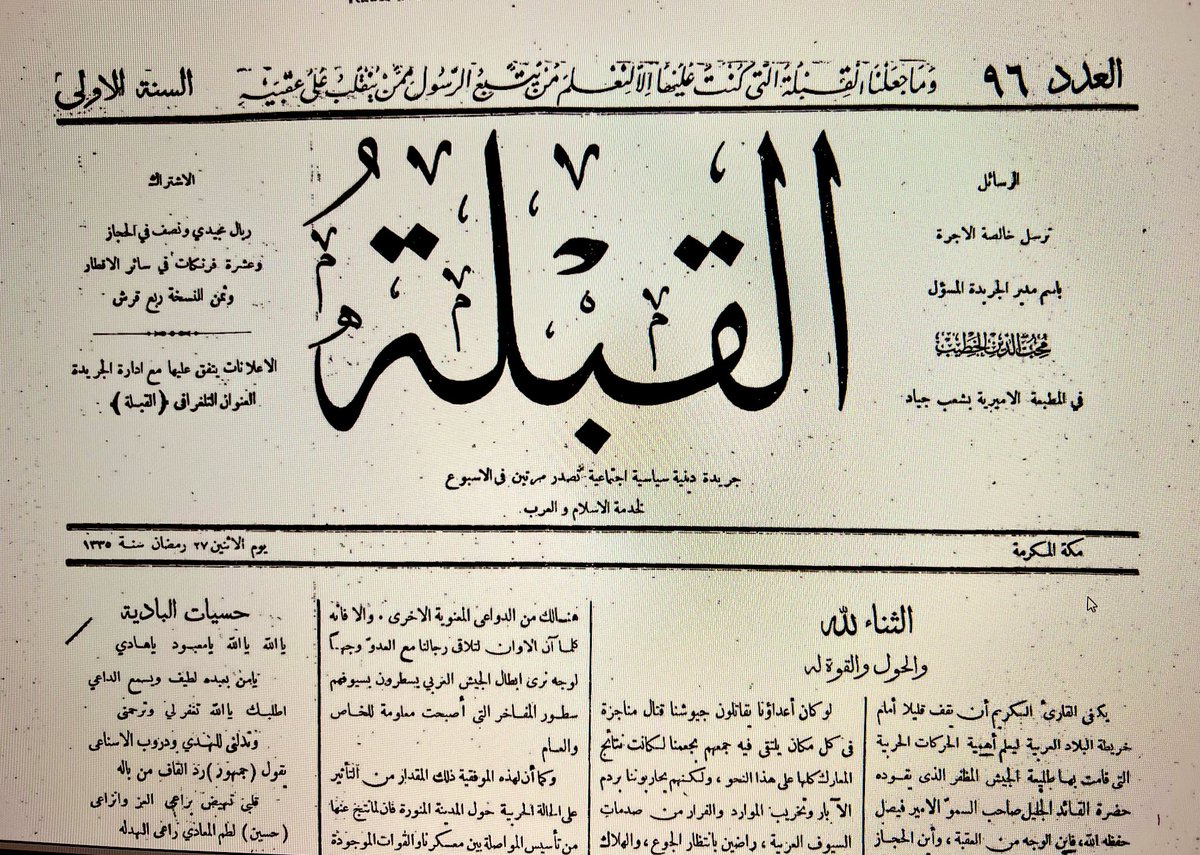 العدد ٩٦
وَمَا جَعَلْنَا الْقِبْلَةَ الَّتِي كُنْتَ عَلَيْهَا إِلَّا لِنَعْلَمَ مَنْ يَتَّبِعُ الرَّسُولَ مِمَّنْ يَنْقَلِبُ عَلَى عَقِبَيْهِ
السنة الاولى
القبلة
الرسائل
ترسل خالصة الاجرة
باسم مدير الجريدة المسؤل
محب الدين الخطيب
في المطبعة الاميرية بشعب جياد
الاشتراك
ريال مجيدي ونصف في الحجاز
وعشرة فرنكات في سائر الاقطار
وثمن النسخة ربع قرش
الاعلانات يتفق عليها مع ادارة الجريدة
العنوان التلغرافى (القبلة)
جريدة دينية سياسية اجتماعية تصدر مرتين فى الاسبوع
لخدمة الاسلام و العرب
مكة المكرمة
يوم الاثنين ٢٧ رمضان سنة ١٣٣٥
الثناء لله
والحول والقوة له
يكفى القارئ الكريم أن يقف قليلا أمام
خريطة البلاد العربية ليعلم أهمية الحركات الحربية
التي قامت بها طليعة الجيش المظفر الذى يقوده
حضرة القائد الجليل صاحب السموّ الامير فيصل
حفظه الله، فاين الوجه من العقبة، وأين الحجاز
لو كان أعداؤنا يقاتلون جيوشنا قتال مناجزة
فى كل مكان يلتقى فيه جمعهم بجمعنا لكانت نتائج
المعارك كلها على هذا النحو، ولكنهم يحاربوننا بردم
الآبار وتخريب الموارد والفرار من صدمات
السيوف العربية، راضين بانتظار الجوع، والهلاك
هنالك من الدواعى المعنوية الاخرى. والا فانه
كلما آن الاوان لتلاقى رجالنا مع العدوّ وجهاً
لوجه نرى ابطال الجيش العربي يسطرون بسيوفهم
سطور المفاخر التى أصبحت معلومة للخاص
والعام
وكما أن لهذه الموفقية ذلك المقدار من التأثير
على الحالة الحربية حول المدينة المنورة فان لما نتج عنها
من تأسيس المواصلة بين معسكرنا والقوات الموجودة
حسيات البادية
يا الله يا الله يامعبود ياهادي
يامن بعبده لطيف ويسمع الداعي
اطلبك يا الله تغفر لي وترحمنى
وتدلنى للهدي ودروب الاسناعى
يقول (جمهور) رد القاف من باله
قلبي تهيض براعي العز وانزاعى
(حسين) لطم المعاذي راعى الهدله